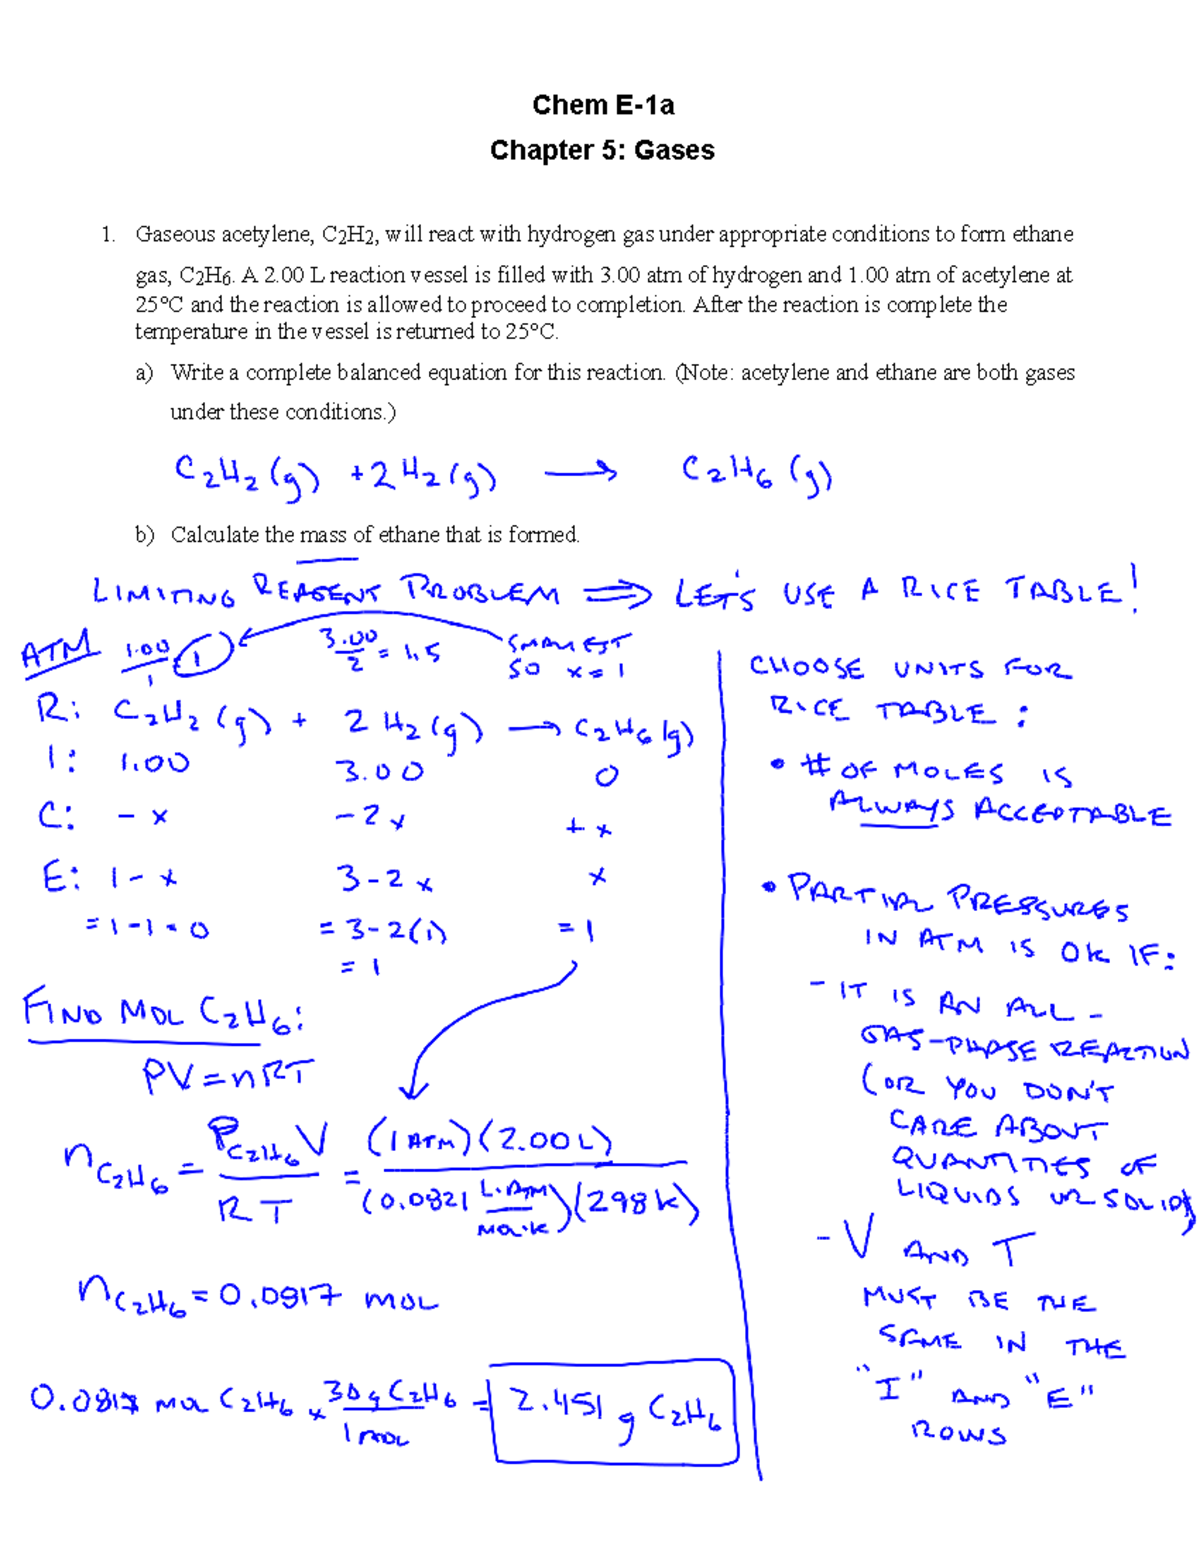 Chem E-1a
Chapter 5: Gases
1. Gaseous acetylene, C2H2, will react with hydrogen gas under appropriate conditions to form ethane
gas, C2H6. A 2.00 L reaction vessel is filled with 3.00 atm of hydrogen and 1.00 atm of acetylene at
25°C and the reaction is allowed to proceed to completion. After the reaction is complete the
temperature in the vessel is returned to 25°C.
a) Write a complete balanced equation for this reaction. (Note: acetylene and ethane are both gases
under these conditions.)
C2H2 (g) + 2 H2 (g) → C2H6 (g)
b) Calculate the mass of ethane that is formed.
LIMITING REAGENT PROBLEM ⇒ LET'S USE A RICE TABLE!
ATM 1.00/1 = 1 3.00/2 = 1.5 SMALLEST
SO x = 1
R: C2H2 (g) + 2 H2 (g) → C2H6 (g)
I: 1.00 3.00 0
C: - x - 2x + x
E: 1 - x 3 - 2x x
= 1 - 1 = 0 = 3 - 2(1) = 1
= 1
FIND MOL C2H6:
PV = nRT
nC2H6 = PC2H6 V / RT = (1 ATM)(2.00 L) / (0.0821 L·ATM/MOL·K)(298 K)
nC2H6 = 0.0817 MOL
0.0817 MOL C2H6 × 30 g C2H6 / 1 MOL = 2.451 g C2H6
CHOOSE UNITS FOR
RICE TABLE:
• # OF MOLES IS
ALWAYS ACCEPTABLE
• PARTIAL PRESSURES
IN ATM IS OK IF:
- IT IS AN ALL-
GAS-PHASE REACTION
(OR YOU DON'T
CARE ABOUT
QUANTITIES OF
LIQUIDS OR SOLIDS)
- V AND T
MUST BE THE
SAME IN THE
"I" AND "E"
ROWS